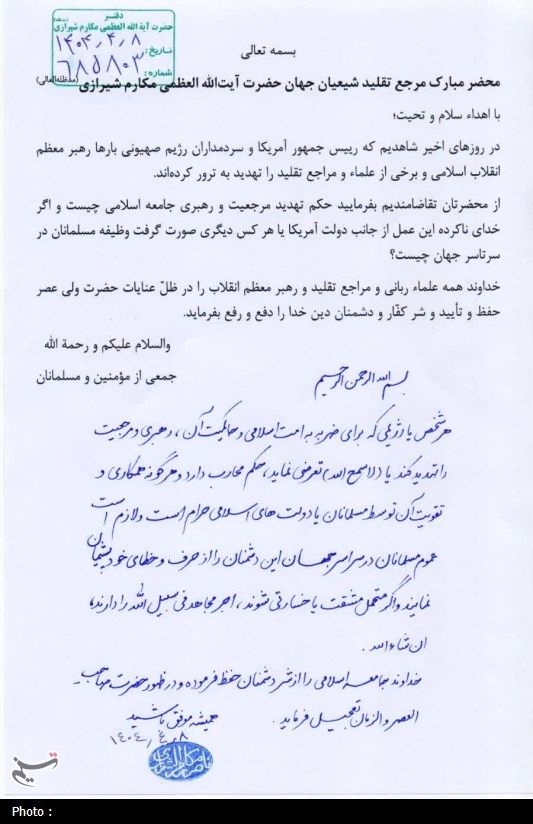 دفتر
حضرت آیة الله العظمی مکارم شیرازی (مدظله)
تاریخ: ۱۴۰۴٫۴٫۸
شماره: ۶۸۵۸۰۳
بسمه تعالی
محضر مبارک مرجع تقلید شیعیان جهان حضرت آیت‌الله العظمی مکارم شیرازی (مدظله‌العالی)
با اهداء سلام و تحیت؛
در روزهای اخیر شاهدیم که رییس جمهور آمریکا و سردمداران رژیم صهیونی بارها رهبر معظم
انقلاب اسلامی و برخی از علماء و مراجع تقلید را تهدید به ترور کرده‌اند.
از محضرتان تقاضامندیم بفرمایید حکم تهدید مرجعیت و رهبری جامعه اسلامی چیست و اگر
خدای ناکرده این عمل از جانب دولت آمریکا یا هر کس دیگری صورت گرفت وظیفه مسلمانان در
سرتاسر جهان چیست؟
خداوند همه علماء ربانی و مراجع تقلید و رهبر معظم انقلاب را در ظلّ عنایات حضرت ولی عصر
حفظ و تأیید و شر کفّار و دشمنان دین خدا را دفع و رفع بفرماید.
والسلام علیکم و رحمة الله
جمعی از مؤمنین و مسلمانان
بسم الله الرحمن الرحیم
هر شخص یا رژیمی که برای ضربه به امت اسلامی و حاکمیت آن، رهبری و مرجعیت
را تهدید کند یا (لاسمح الله) تعرضی نماید، حکم محارب دارد و هرگونه همکاری و
تقویت آن توسط مسلمانان یا دولت های اسلامی حرام است و لازم است
عموم مسلمانان در سراسر جهان این دشمنان را از حرف و خطای خود پشیمان
نمایند و اگر متحمل مشقت یا خسارتی شوند، اجر مجاهد فی سبیل الله را دارند،
ان شاءالله.
خداوند جامعه اسلامی را از شر دشمنان حفظ فرموده و در ظهور حضرت صاحب
العصر والزمان تعجیل فرماید.
همیشه موفق باشید
۱۴۰۴٫۴٫۸
تسنیم
Photo :